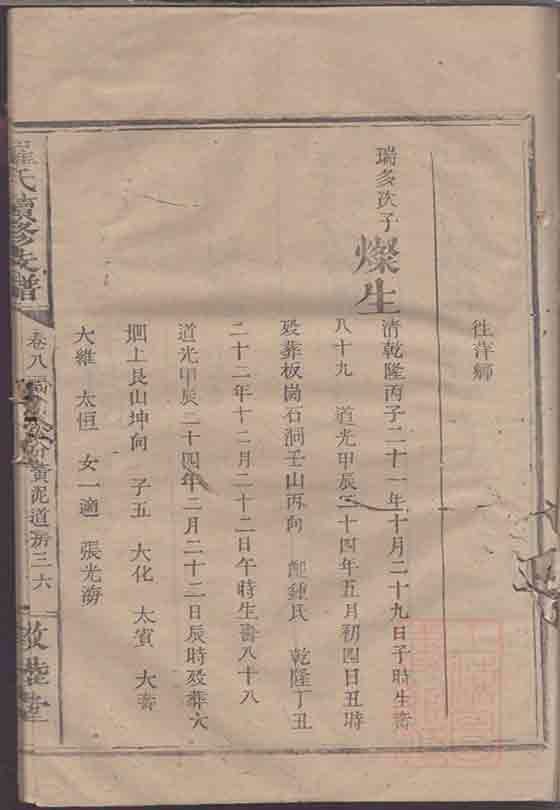 往萍鄉
瑞多次子
燦生
清乾隆丙子二十一年十月二十九日子時生壽
八十九 道光甲辰二十四年五月初四日丑時
歿葬板崗石洞壬山丙向 配鍾氏 乾隆丁丑
二十二年十二月二十二日午時生壽八十八
道光甲辰二十四年二月二十二日辰時歿葬六
坵上艮山坤向 子五 大化 大賓 大壽
大維 大恒 女一適 張光海
羅氏續修族譜
卷八 分黃泥道房三六
敦睦堂